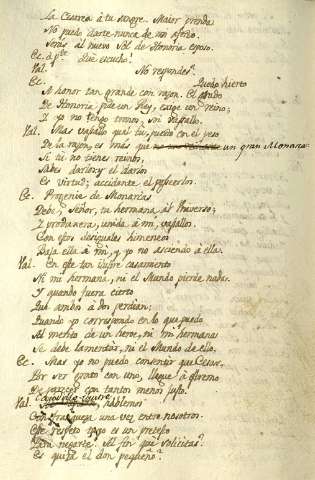 La Cesarea à tu sangre. Maior prenda
No puedo darte nunca de un afecto.
Serás al nuevo Sol de Honoria esposo.
Ec. à pte Què escucho!
Val. No respondes?
Ec. Quedo hierto
A honor tan grande con razon. El
De Honoria pide un Rey, exige un reino;
I yo no tengo trono, ni vasallo.
Val. Mas vasallo qual tu, puesto con el peso
De la razon, es mas que un gran Monarca.
Si tu no tienes reinos,
Sabes darlos; y el darlos
Es virtud; accidente el posseerlos.
Ec. Progenie de Monarcas
Debe, Señor, tu hermana al Universo;
I unida à mi, vasallo,
Con estos desiguales himeneos
Baja ella à mi, y yo no asciendo à ella.
Val. En este tan ilustre casamiento
Ni mi hermana, ni el Mundo pierde nada.
I quando fuera cierto
Que ambos à dos perdian;
Quando yo correspondo en lo que puedo
Al merito de un heroe, ni mi hermana
Se debe lamentar, ni el Mundo de ello.
Ec. Mas yo no puedo consentir que Cesar,
Por ser grato con uno, llegue à estremo
De parecer con tantos menos justo.
Val. hablemos
Con franqueza una vez entre nosotros.
Este respeto tuyo es un pretesto
Para negarte. Al fin què solicitas?
Es quizà el don pequeño?